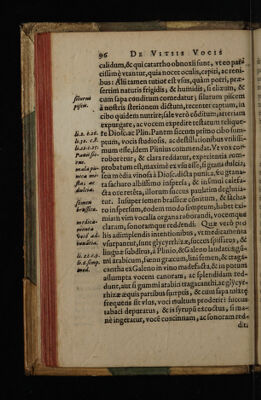 96 DE VITIIS VOCIS
calidum, & qui catarrho obnoxii sunt, vt eo par-
cissimè vtantur, quia nocet oculis, capiti, ac reni-
bus: Alii tamen tutiot est vsus, quàm porri, præ-
sertim naturis frigidis, & humidis, si elixum, &
cum sapa conditum comedatur; silurum piscem
à nostris sterionem dictum, recenter captum, in
cibo quidem nutrire, sale verò côditum, arteriam
expurgare, ac vocem expedire testatum relique-
re Diosc. ac Plin. Panem siccum primo cibo sum-
ptum, vocis
mum esse, idem Plinius commendat. Ve vox cor-
roboretur, & clara reddatur, experientia com-
probatum est, maximi ex vsu esse, si punica dulcia,
seu media vinosa à Diosc. dicta punica,
ta saccharo albissimo inspersa, & in
cta ore retêta, illorum succus paulatim deglutia-
tur. Insuper semen brassicæ contusum, & saccha-
ro inspersum, eodem modo sumptum, habet exi-
miam vim vocalia organa roborandi, vocemque
claram, sonoramque reddendi. Quòd verò pul
bis adimplendis intentionibus, vt medicamenta
vsurpauêt, sunt glycyrrhizæ, succus spissatus, &
linguæ subditus, à Plinio, & Galeno laudatus, gũ-
mi arabicum, fænũ græcum, lini semen, & traga-
cantha ex Galeno in vino madefacta, & in potum
assumpta vocem canoram, ac splendidam red-
dunt, aut si gummi arabici tragacanthi, ac glycyr-
rhizæ æquis partibus sumptis, & cum sapa mixtis
frequens fit vsus, voci multum proderit: succus
tabaci depuratus, & in syrupũ excoctus, si ma-
nè ingeratur, você concinnam, ac sonoram red-
dit:
silurus
piscis.
li. 2. c. 26.
li. 32. c. 9.
li. 22. c. 25.
Panis sic-
cus.
mala pu-
nica me-
dia, ac
dulcia.
semen
brassicæ.
medica-
menta
voci ad-
li. 22. c. 9.
li. 6. simp.
med.